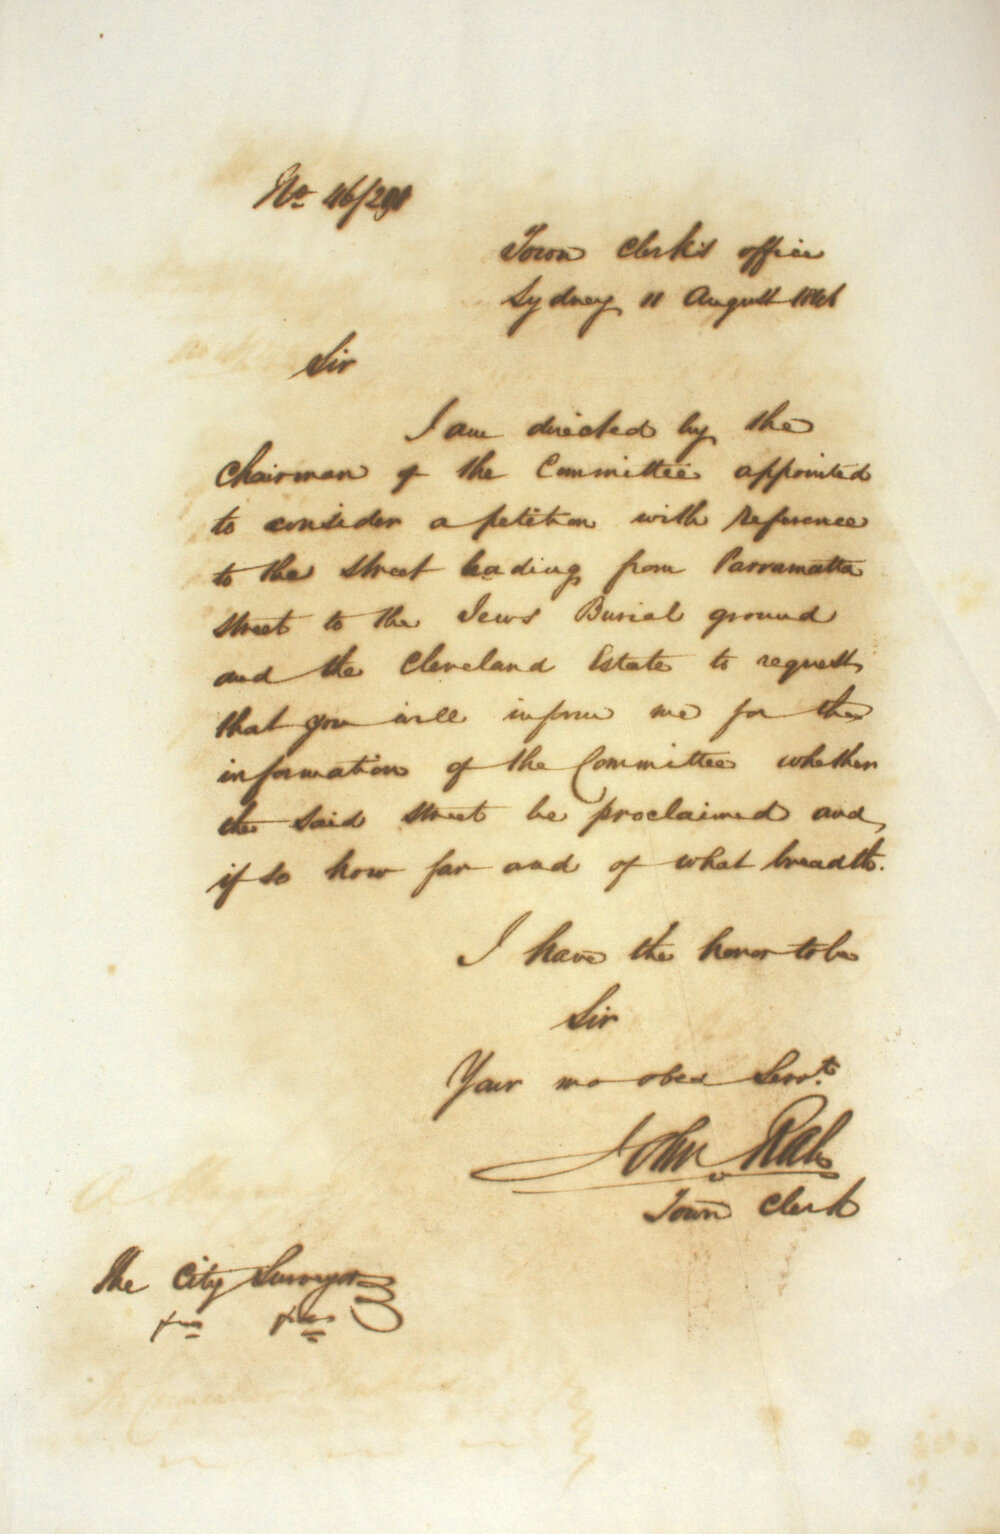 No. 46/291
Town Clerk's office
Sydney 11 August 1846
Sir
I am directed by the
Chairman of the Committee appointed
to consider a petition with reference
to the street leading from Parramatta
street to the Jews Burial ground
and the Cleveland Estate to request
that you will inform me for the
information of the Committee whether
the said street be proclaimed and
if so how far and of what breadth.
I have the honor to be
Sir
Your mo obed Servt.
John Rae
Town Clerk
The City Surveyor